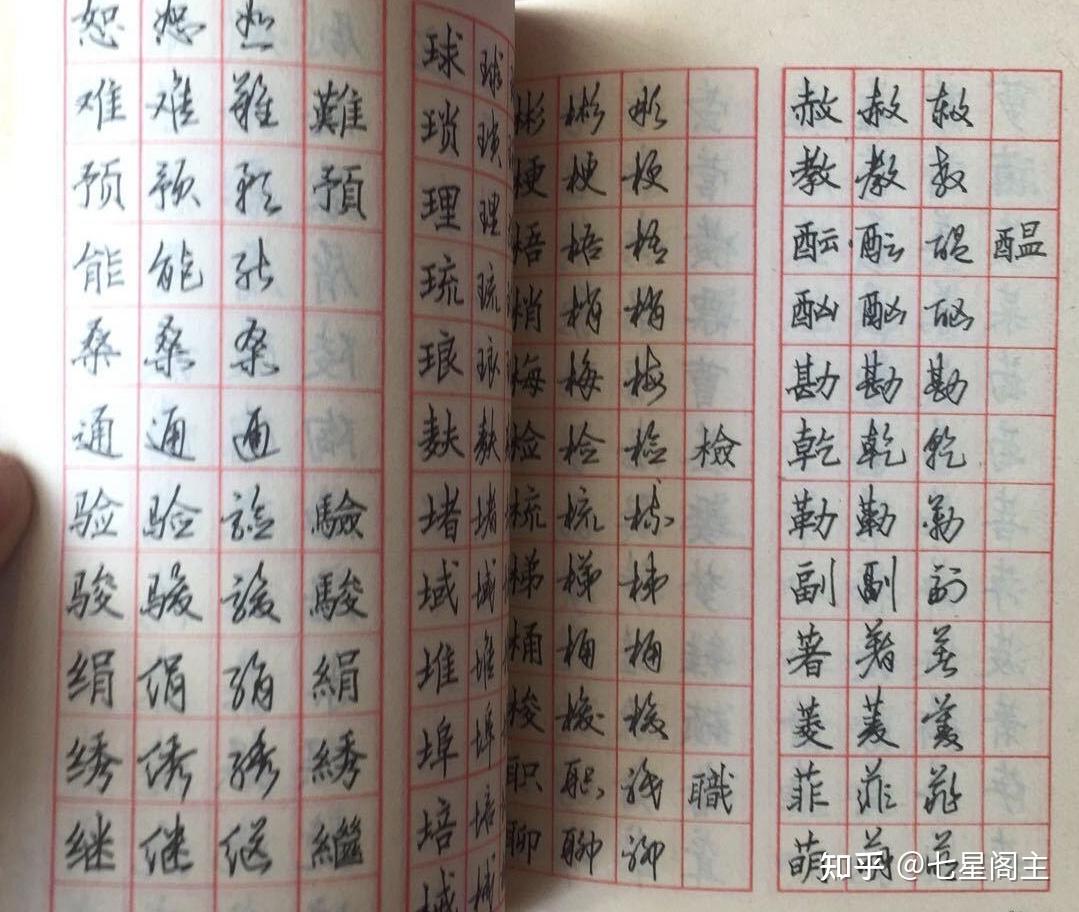 恕 恕 恕
难 难 難 難
预 预 预 預
能 能 能
桑 桑 桑
通 通 通
验 验 验 驗
骏 骏 骏 駿
绢 绢 绢 絹
绣 绣 绣 綉
继 继 继 繼
球 球
琐 琐
理 理
琉 琉
琅 琅
麸 麸
堵 堵
域 域
堆 堆
埠 埠
培 培
域 域
彬 彬 彬
梗 梗 梗
梧 梧 梧
梢 梢 梢
梅 梅 梅
检 检 检 檢
梳 梳 梳
梯 梯 梯
桶 桶 桶
梭 梭 梭
职 职 职 職
聊 聊 聊
赦 赦 赦
教 教 教
酝 酝 醖 醖
酗 酗 酗
勘 勘 勘
乾 乾 乾
勒 勒 勒
副 副 副
著 著 著
菱 菱 菱
菲 菲 菲
萌 萌 萌
知乎 @七星阁主